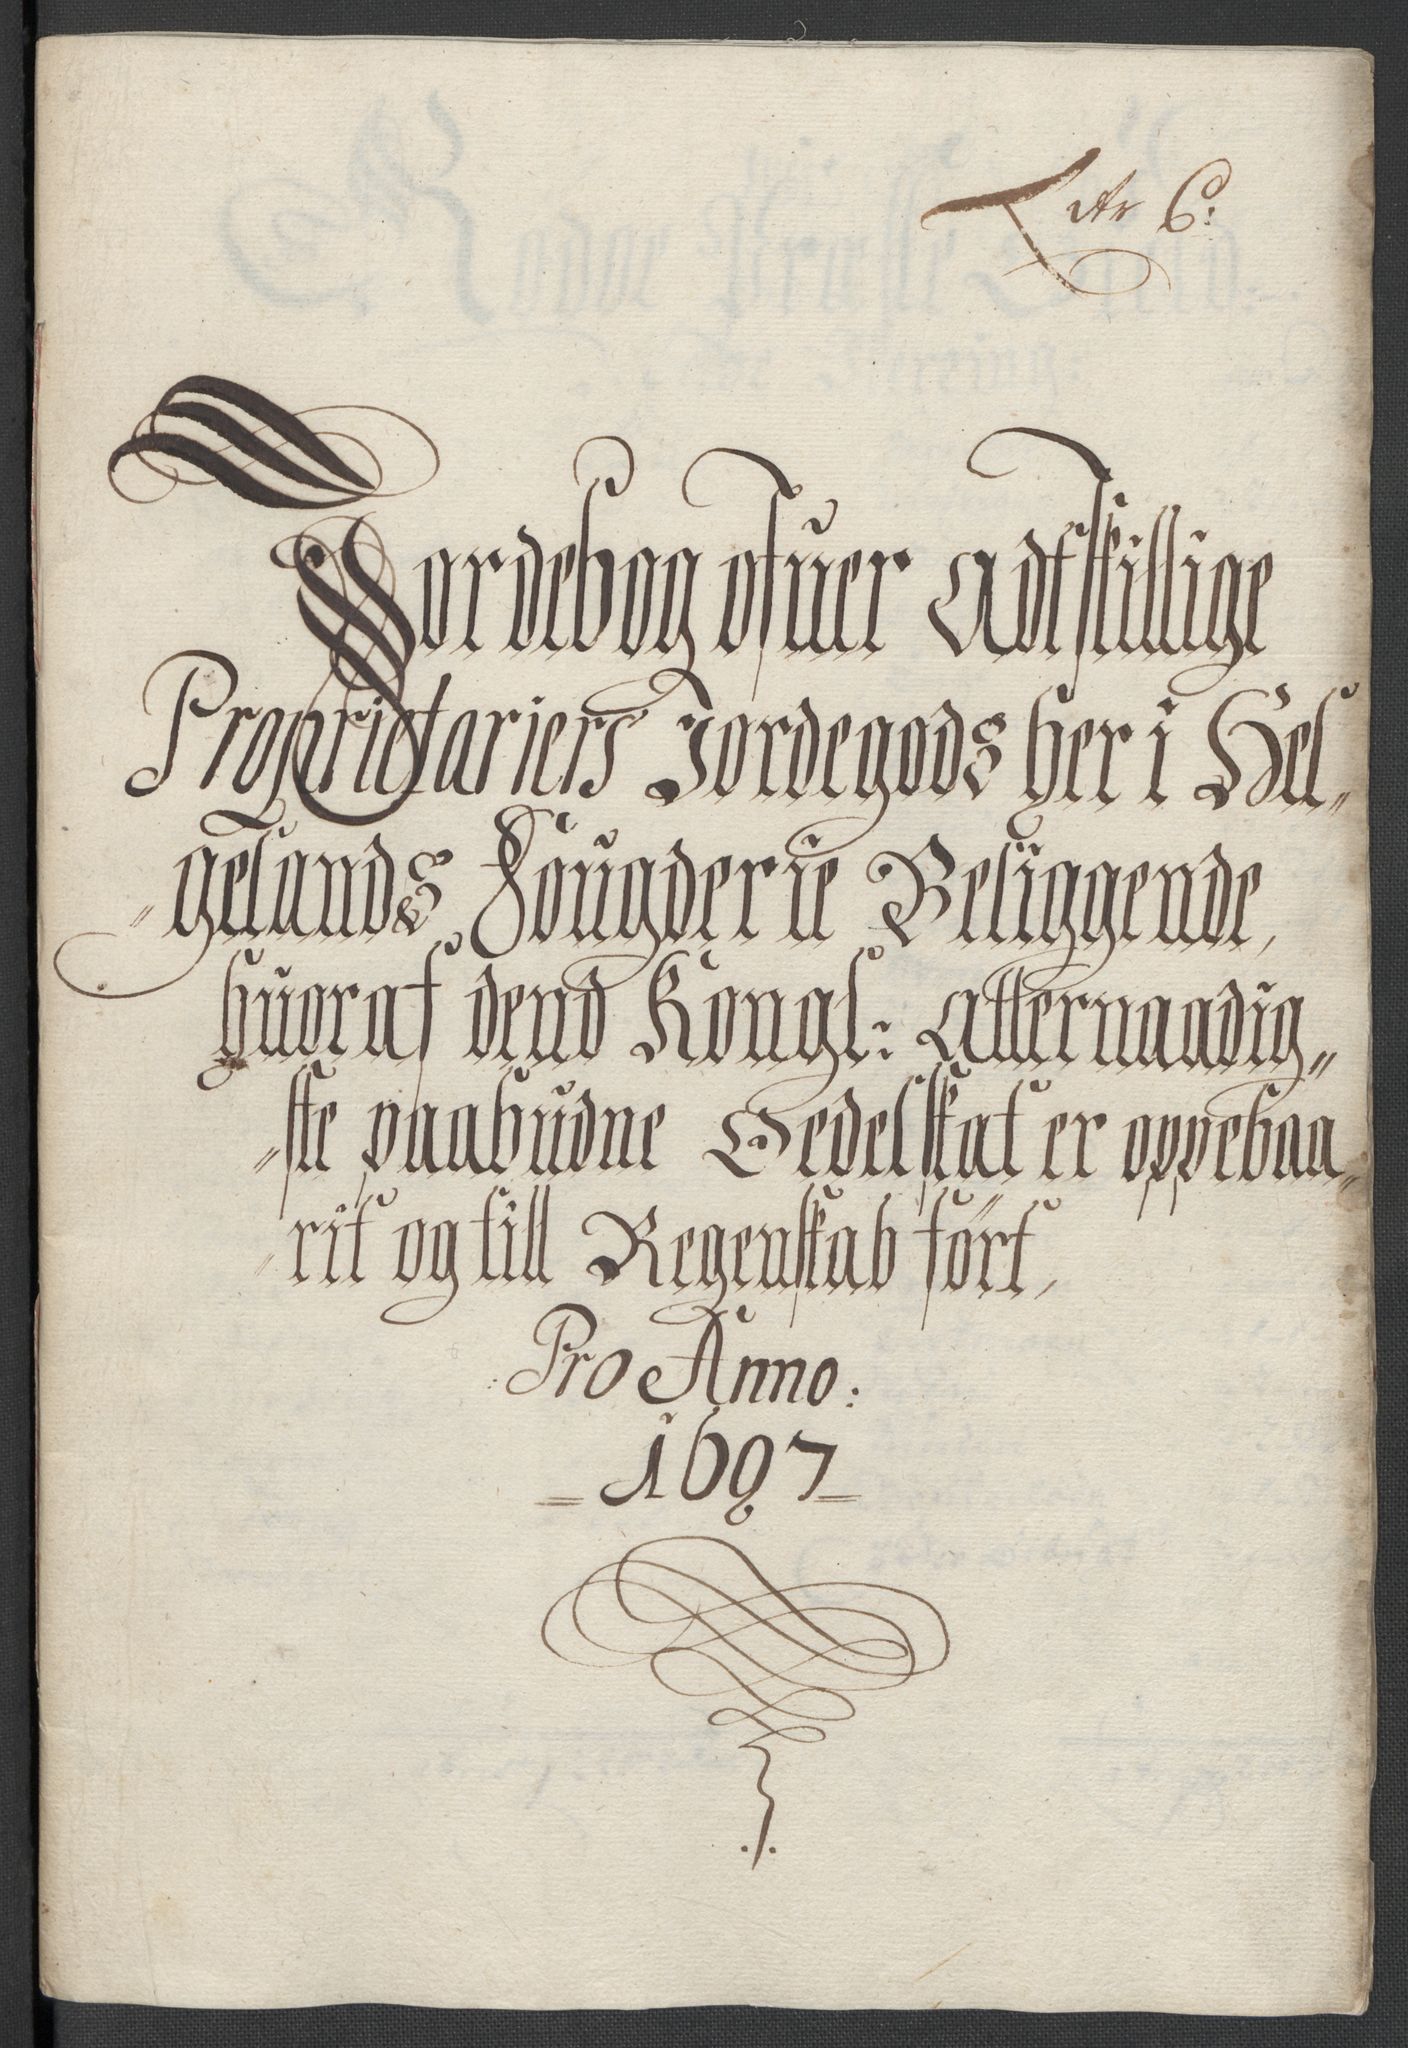 Litr C:
Jordebog ofuer Adtskillige
Proprietariers Jordegods her i Hel„
„gelands Fougderie Beliggende,
huoraf dend Kongl: Allernaadig„
„ste paabudne Oedelskat er oppebaa„
„rit og till Regenskab ført,
Pro Anno:
1697